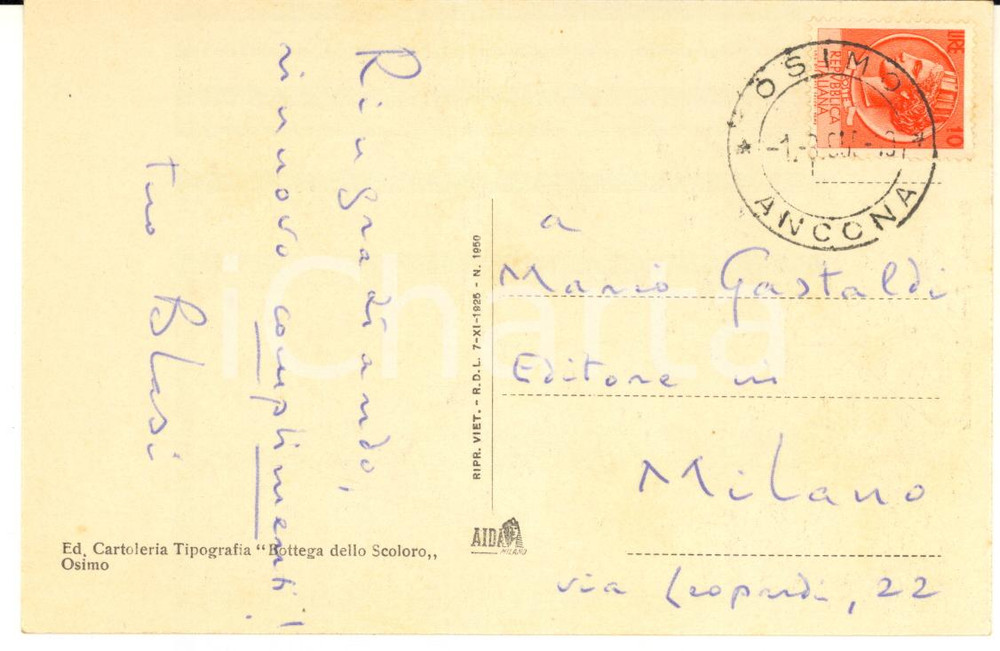 Ringraziando,
rinnovo complimenti!
tuo Blasi
Ed. Cartoleria Tipografia “Bottega dello Scoloro„
Osimo
RIPR. VIET. - R.D.L. 7-XI-1925 - N. 1950
AIDA
MILANO
LIRE 10
POSTE
REPVBBLICA
ITALIANA
OSIMO
* *
ANCONA
a
Mario Gastaldi
Editore in
Milano
via Leopardi, 22
iCharta